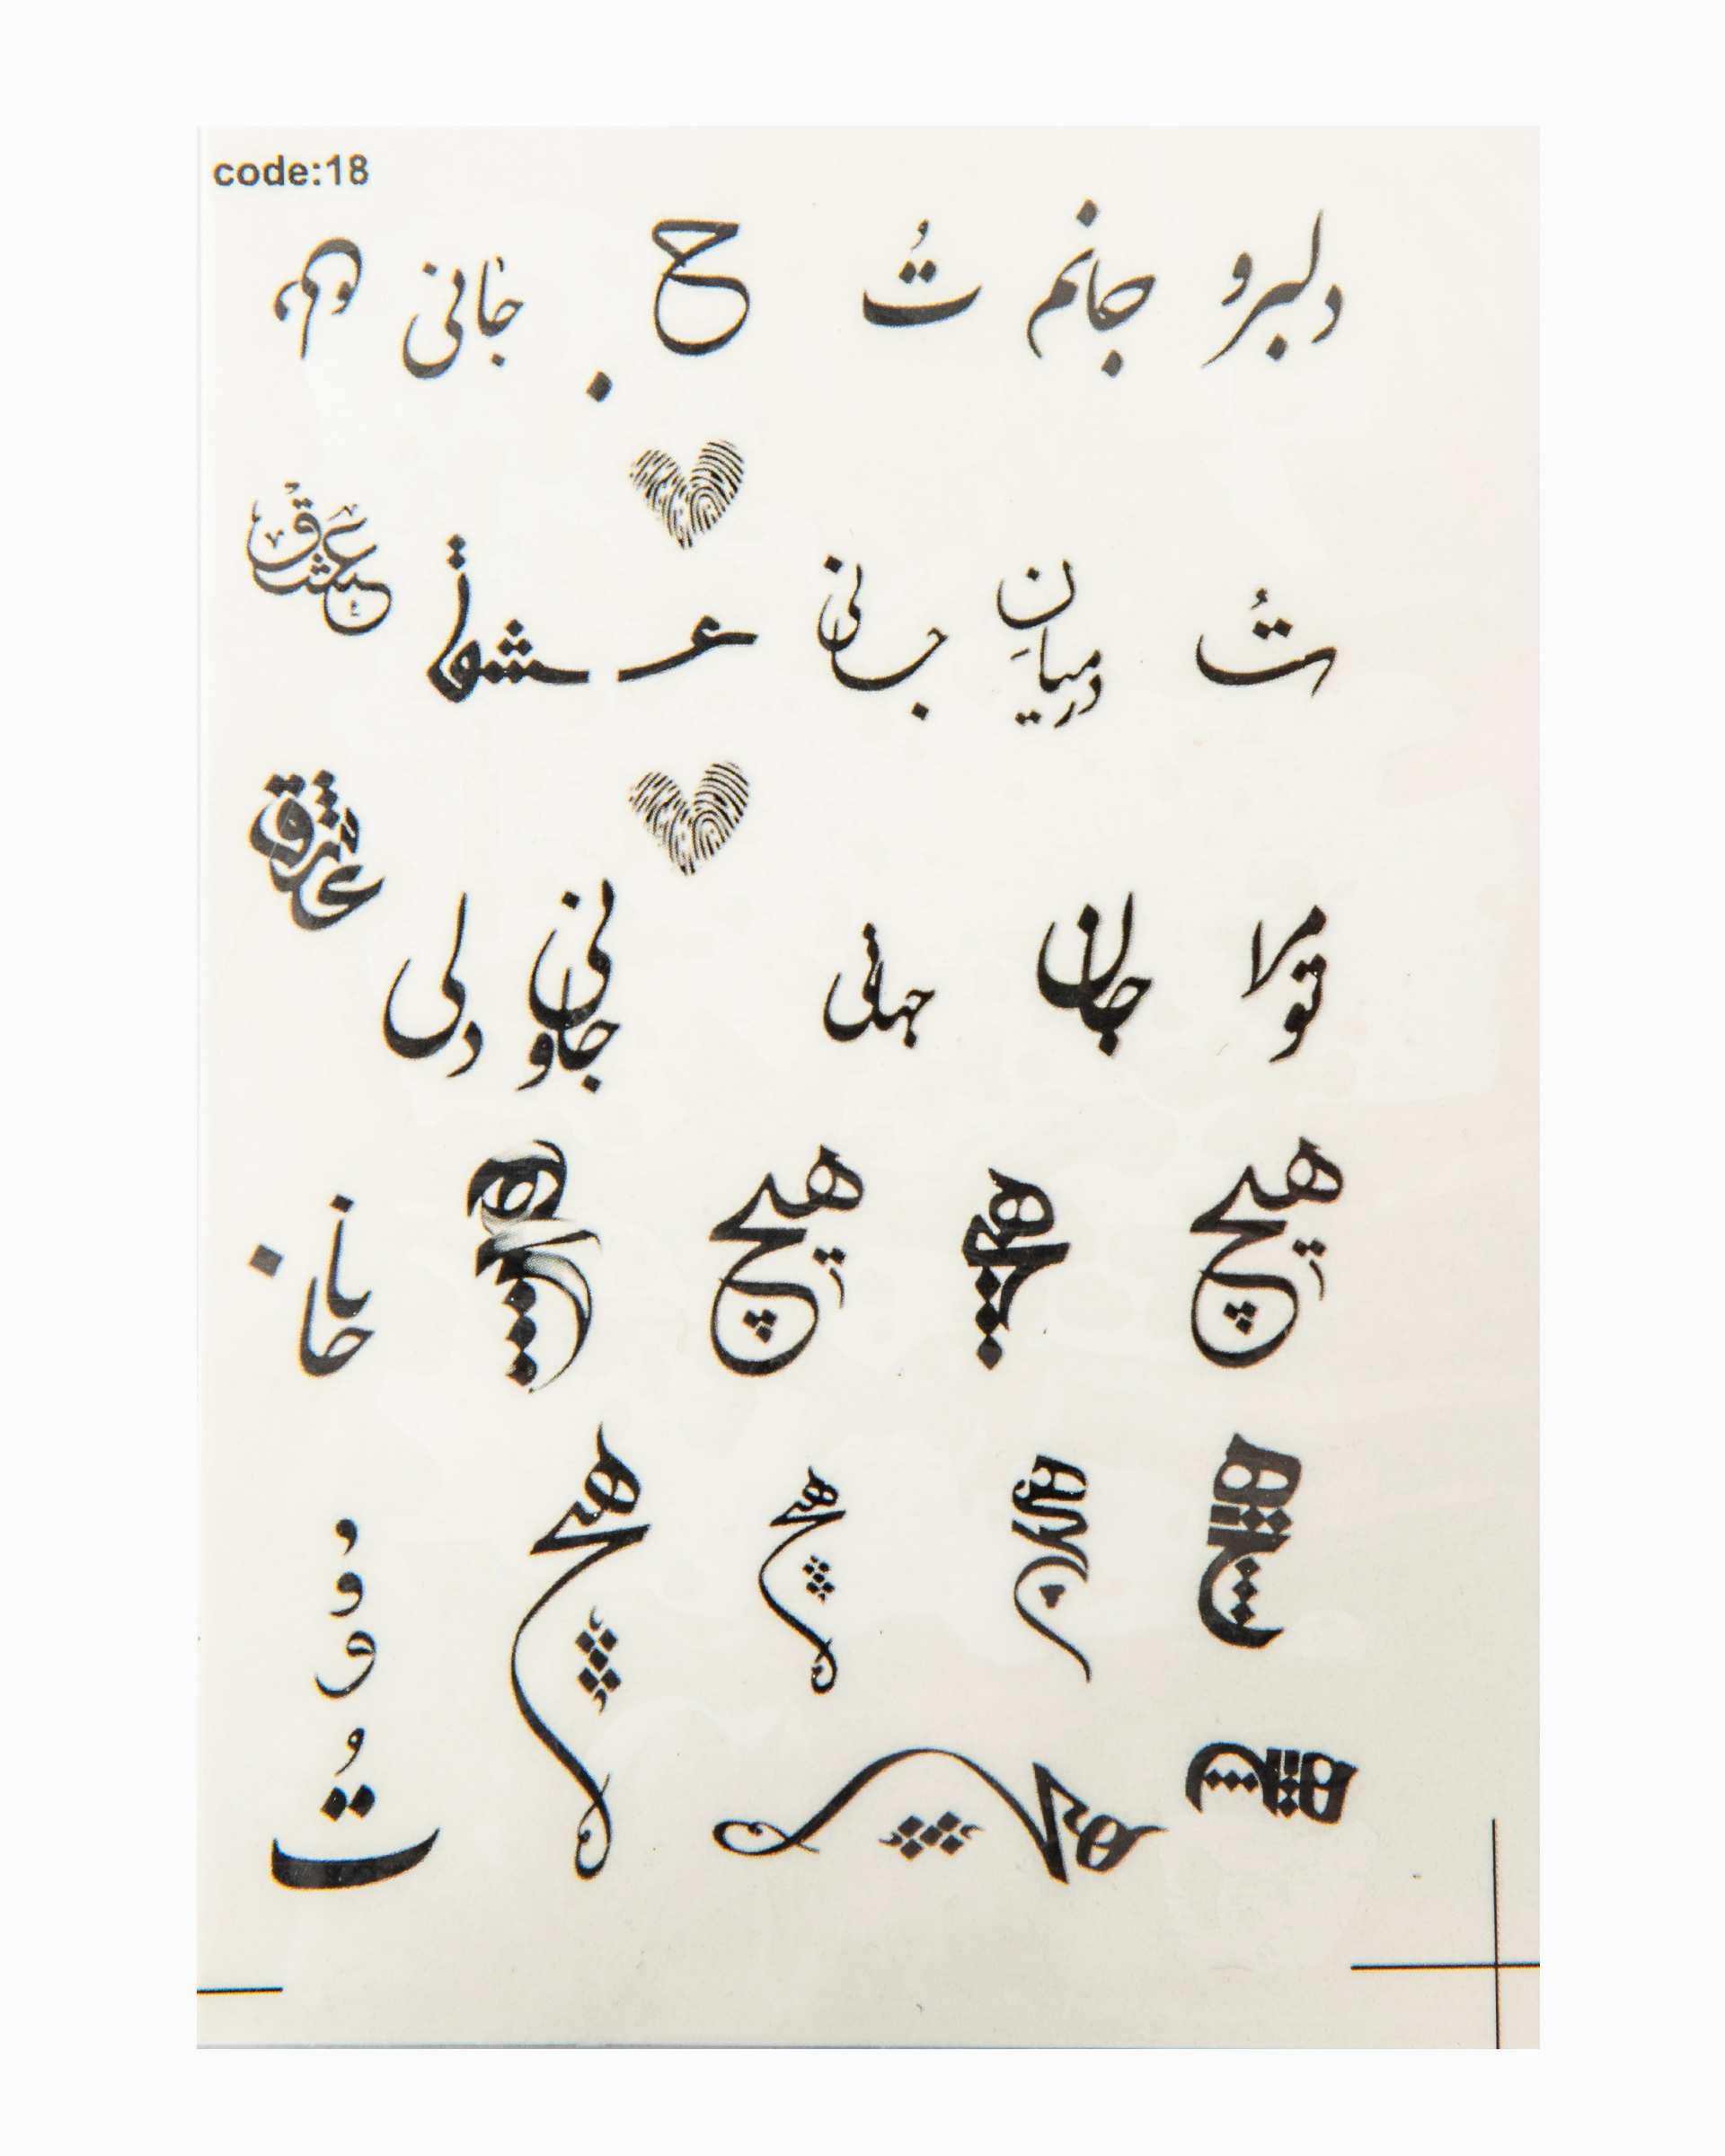 code:18
دلبر و جانم تُ ح جانی
تُ درمیانِ جانی عشق عشق
تو مرا جان جهانی جانی و دلی عشق
هیچ هیچ هیچ هیچ جان
هیچ هیچ هیچ هیچ
هیچ هیچ تُ